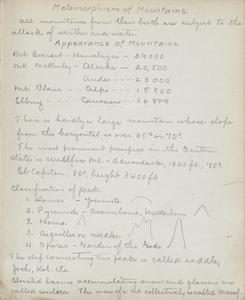 Metamorphism of Mountains.
All mountains from their birth are subject to the
attack of weather and water.
Appearance of Mountains.
Mt Everest - Himalayas - 29000
Mt. McKinley - Alaska - 20,500
Andes - - - 23000
Mt. Blanc - Alps - - - 15800
Elburz - Caucasus - 18800
There is hardly a large mountain whose slope
from the horizontal is over 80° or 70°
The most prominent precipice in the Eastern
states is Wallface Mt. - Adirondacks, 1300 ft, 70°
El Capitan, 80°, height 3400 ft
Classification of peaks.
1. Domes - Yosemite
2. Pyramids - Assiniboine, Matterhorn
3. Horns
4. Aiguilles or needles.
4. Spires - Garden of the Gods
The dip connecting two peaks is called saddle,
Joch, Kol, etc
Elevated basins accumulating snow and glaciers are
called The mass of a mt collectively is called Massif